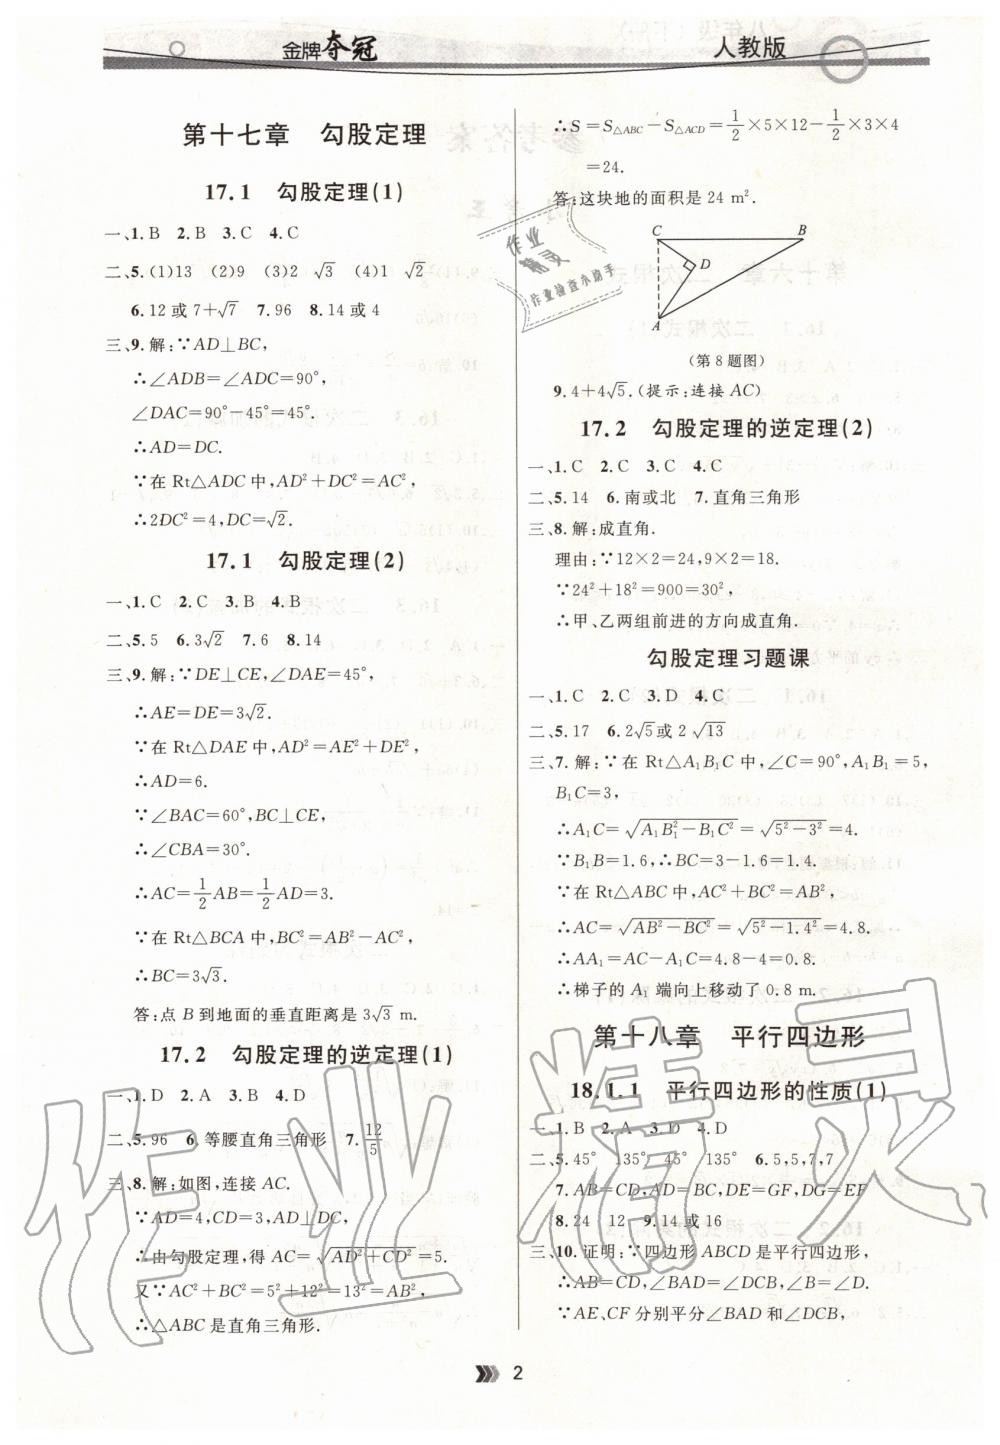 金牌夺冠
人教版
第十七章　勾股定理
17.1　勾股定理(1)
一、1.B　2.B　3.C　4.C
二、5.(1)13　(2)9　(3)2　√3　(4)1　√2
6.12或7+√7　7.96　8.14或4
三、9.解:∵AD⊥BC,
∴∠ADB=∠ADC=90°,
∠DAC=90°-45°=45°.
∴AD=DC.
∵在 Rt△ADC 中,AD²+DC²=AC²,
∴2DC²=4,DC=√2.
17.1　勾股定理(2)
一、1.C　2.C　3.B　4.B
二、5.5　6.3√2　7.6　8.14
三、9.解:∵DE⊥CE,∠DAE=45°,
∴AE=DE=3√2.
∵在 Rt△DAE 中,AD²=AE²+DE²,
∴AD=6.
∵∠BAC=60°,BC⊥CE,
∴∠CBA=30°.
∴AC=1/2AB=1/2AD=3.
∵在 Rt△BCA 中,BC²=AB²-AC²,
∴BC=3√3.
答:点 B 到地面的垂直距离是 3√3 m.
17.2　勾股定理的逆定理(1)
一、1.D　2.A　3.B　4.D
二、5.96　6.等腰直角三角形　7.12/5
三、8.解:如图,连接 AC.
∵AD=4,CD=3,AD⊥DC,
∴由勾股定理,得 AC=√(AD²+CD²)=5.
又∵AC²+BC²=5²+12²=13²=AB²,
∴△ABC 是直角三角形.
∴S=S△ABC-S△ACD=1/2×5×12-1/2×3×4
=24.
答:这块地的面积是 24 m².
C
B
D
A
(第 8 题图)
9.4+4√5.(提示:连接 AC)
17.2　勾股定理的逆定理(2)
一、1.C　2.C　3.C　4.C
二、5.14　6.南或北　7.直角三角形
三、8.解:成直角.
理由:∵12×2=24,9×2=18.
∵24²+18²=900=30²,
∴甲、乙两组前进的方向成直角.
勾股定理习题课
一、1.C　2.C　3.D　4.C
二、5.17　6.2√5或 2√13
三、7.解:∵在 Rt△A₁B₁C 中,∠C=90°,A₁B₁=5,
B₁C=3,
∴A₁C=√(A₁B₁²-B₁C²)=√(5²-3²)=4.
∵B₁B=1.6,∴BC=3-1.6=1.4.
∵在 Rt△ABC 中,AC²+BC²=AB²,
∴AC=√(AB²-BC²)=√(5²-1.4²)=4.8.
∴AA₁=AC-A₁C=4.8-4=0.8.
∴梯子的 A₁ 端向上移动了 0.8 m.
第十八章　平行四边形
18.1.1　平行四边形的性质(1)
一、1.B　2.A　3.D　4.D
二、5.45°　135°　45°　135°　6.5,5,7,7
7.AB=CD,AD=BC,DE=GF,DG=EF
8.24　12　9.14 或 16
三、10.证明:∵四边形 ABCD 是平行四边形,
∴AB=CD,∠BAD=∠DCB,∠B=∠D.
∵AE、CF 分别平分∠BAD 和∠DCB,
2
作业
精灵
作业检查小助手
作业精灵